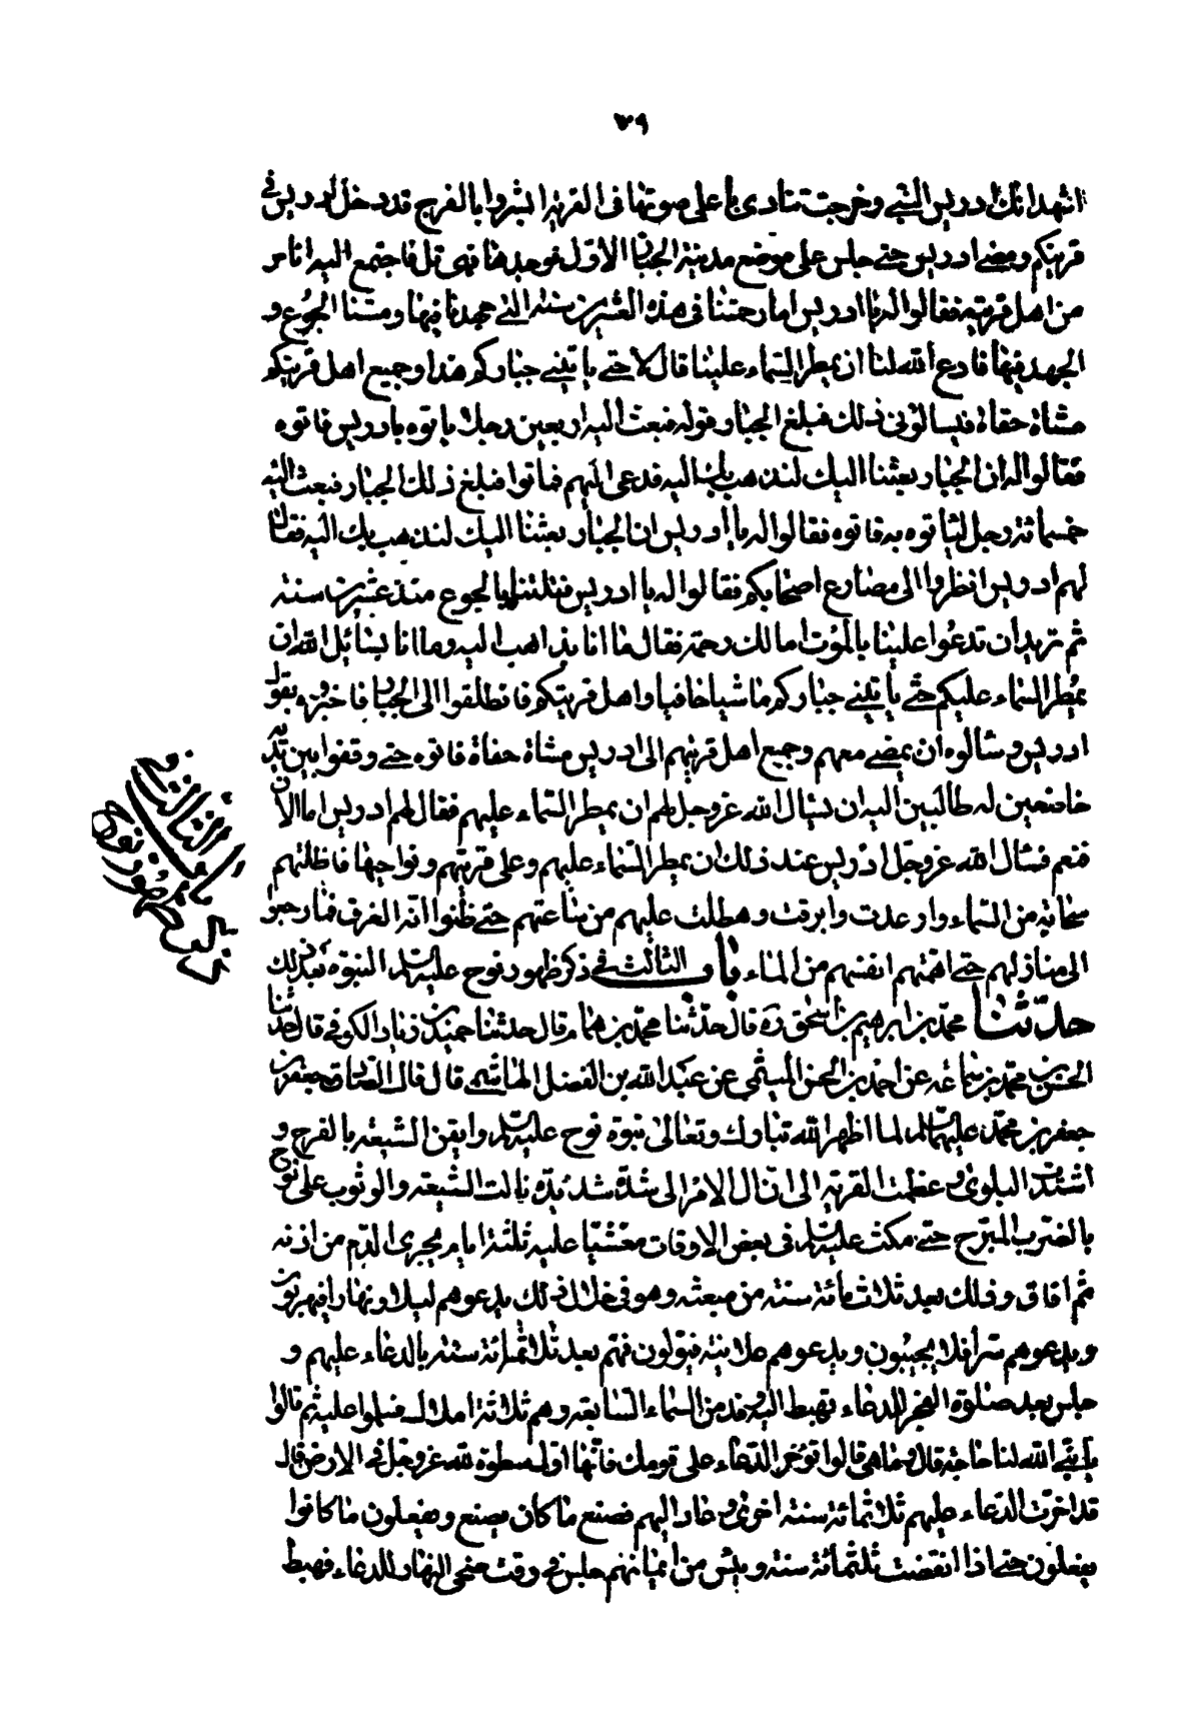 ٧٩
اشهد انك ادريس النبي وخرجت تنادي باعلى صوتها في القرية ابشروا بالفرج قد دخل ادريس في
قريتكم ومضى ادريس حتى جلس على موضع مدينة الجبار الاول فوجدها فهي تل فاجتمع اليه اناس
من اهل قريته فقالوا له يا ادريس اما رحمتنا في هذه العشرين سنة التي جهدنا فيها ومسنا الجوع و
الجهد فيها فادع الله لنا ان يمطر السماء علينا قال لا حتى ياتيني جباركم هذا وجميع اهل قريتكم
مشاة حفاة فيسالوني ذلك فبلغ الجبار قوله فبعث اليه اربعين رجلا ياتوه بادريس فاتوه
فقالوا له ان الجبار بعثنا اليك لنذهب بك اليه فدعى اليهم فماتوا فبلغ ذلك الجبار فبعث اليه
خمسمائة رجل لياتوه به فاتوه فقالوا له يا ادريس ان الجبار بعثنا اليك لنذهب بك اليه فقال
لهم ادريس انظروا الى مصارع اصحابكم فقالوا له يا ادريس قتلتنا بالجوع منذ عشرين سنة
ثم تريد ان تدعوا علينا بالموت اما لك رحمة فقال ما انا بذاهب اليه وما انا بسائل الله ان
يمطر السماء عليكم حتى ياتيني جباركم ماشيا حافيا واهل قريتكم فانطلقوا الى الجبار فاخبروه بقول
ادريس وسالوه ان يمضي معهم وجميع اهل قريتهم الى ادريس مشاة حفاة فاتوه حتى وقفوا بين يديه
خاضعين له طالبين اليه ان يسال الله عز وجل لهم ان يمطر السماء عليهم فقال لهم ادريس اما الان
فنعم فسال الله عز وجل ادريس عند ذلك ان يمطر السماء عليهم وعلى قريتهم ونواحيها فاظلتهم
سحابة من السماء وارعدت وابرقت وهطلت عليهم من ساعتهم حتى ظنوا انه الغرق فما رجعوا
الى منازلهم حتى اهمتهم انفسهم من الماء باب الثالث في ذكر ظهور نوح عليه السلام النبوة بعد ذلك
باب الثالث في
ظهور نوح
بالنبوة
حدثنا محمد بن ابراهيم بن اسحق ره قال حدثنا محمد بن همام قال حدثنا حميد بن زياد الكوفي قال حدثنا
الحسن بن محمد بن سماعه عن احمد بن الحسن الميثمي عن عبد الله بن الفضل الهاشمي قال قال الصادق جعفر بن
جعفر بن محمد عليهما السلام لما اظهر الله تبارك وتعالى نبوة نوح عليه السلام وايقن الشيعة بالفرج و
اشتدت البلوى وعظمت الفرية الى ان ال الامر الى شدة شديدة نالت الشيعة والوثوب على نوح
بالضرب المبرح حتى مكث عليه السلام في بعض الاوقات مغشيا عليه ثلثة ايام يجري الدم من اذنه
ثم افاق وذلك بعد ثلاث مائة سنة من مبعثه وهو في خلال ذلك يدعوهم ليلا ونهارا فيهربون
ويدعوهم سرا فلا يجيبون ويدعوهم علانية فيولون فهم بعد ثلاثمائة سنة بالدعاء عليهم و
جلس بعد صلوة الفجر للدعاء فهبط اليه وفد من السماء السابعة وهم ثلاثة املاك فسلموا عليه ثم قالوا
يا نبي الله لنا حاجة قال وما هي قالوا تؤخر الدعاء على قومك فانها اول سطوة لله عز وجل في الارض قال
قد اخرت الدعاء عليهم ثلاثمائة سنة اخرى وعاد اليهم فصنع ما كان يصنع ويفعلون ما كانوا
يفعلون حتى اذا انقضت ثلثمائة سنة ويئس من ايمانهم جلس في وقت ضحى النهار للدعاء فهبط